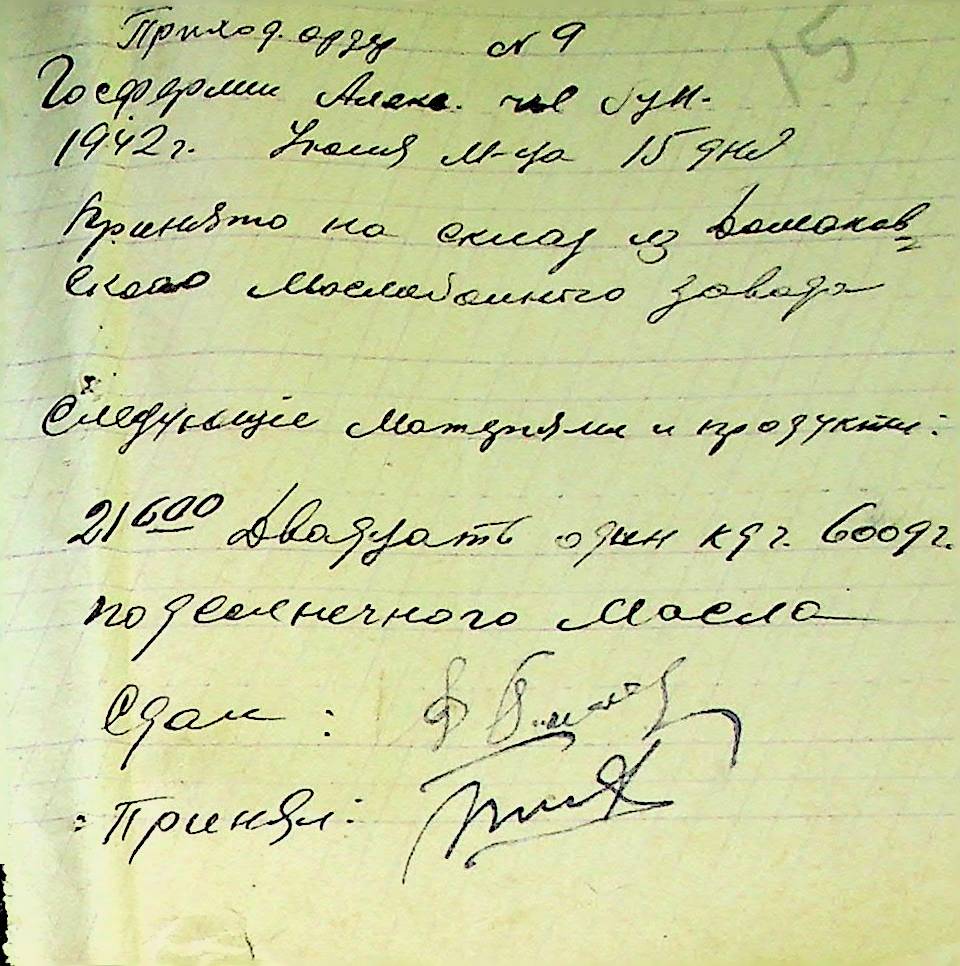 15
Приход. ордер № 9
Госфермы Алекс.
1942 г. Июля м-ца 15 дня
Принято на склад из Домаков-
ского Маслобойного завода
Следующие материалы и продукты:
21600 Двадцать один кгр. 600 гр.
подсолнечного масла
Сдал :
Принял: